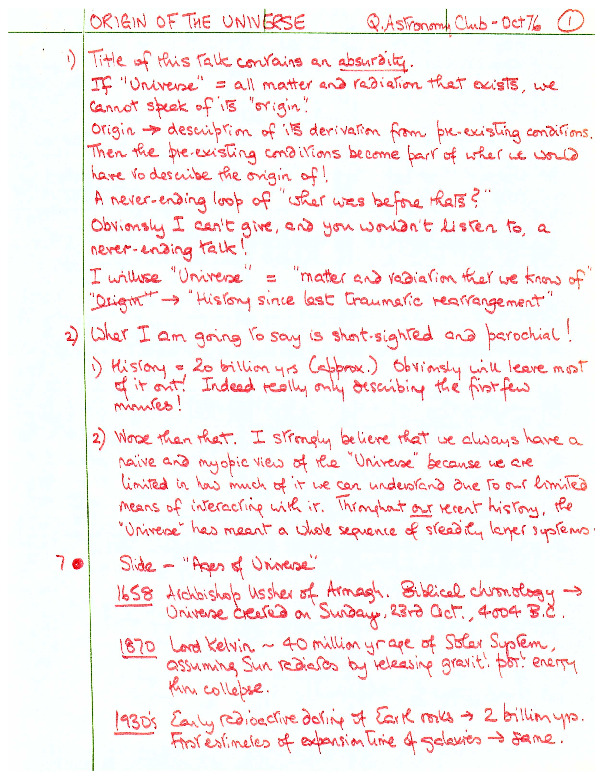 ORIGIN OF THE UNIVERSE Q. Astronomy Club - Oct 76 1
1) Title of this talk contains an absurdity.
If "Universe" = all matter and radiation that exists, we
cannot speak of its "origin".
Origin → description of its derivation from pre-existing conditions.
Then the pre-existing conditions become part of what we would
have to describe the origin of!
A never-ending loop of "what was before that?"
Obviously I can't give, and you wouldn't listen to, a
never-ending talk!
I will use "Universe" = "matter and radiation that we know of"
"Origin" → "History since last traumatic rearrangement"
2) What I am going to say is short-sighted and parochial!
1) History = 20 billion yrs (approx.) Obviously will leave most
of it out! Indeed really only describing the first few
minutes!
2) Worse than that. I strongly believe that we always have a
naive and myopic view of the "Universe" because we are
limited in how much of it we can understand due to our limited
means of interacting with it. Throughout our recent history, the
"Universe" has meant a whole sequence of steadily larger systems.
7 • Slide - "Ages of Universe"
1658 Archbishop Ussher of Armagh. Biblical chronology →
Universe created on Sunday, 23rd Oct., 4004 B.C.
1870 Lord Kelvin ~ 40 million yr age of Solar System,
assuming Sun radiates by releasing gravit. pot. energy
thru collapse.
1930's Early radioactive dating of Earth rocks → 2 billion yrs.
First estimates of expansion time of galaxies → same.